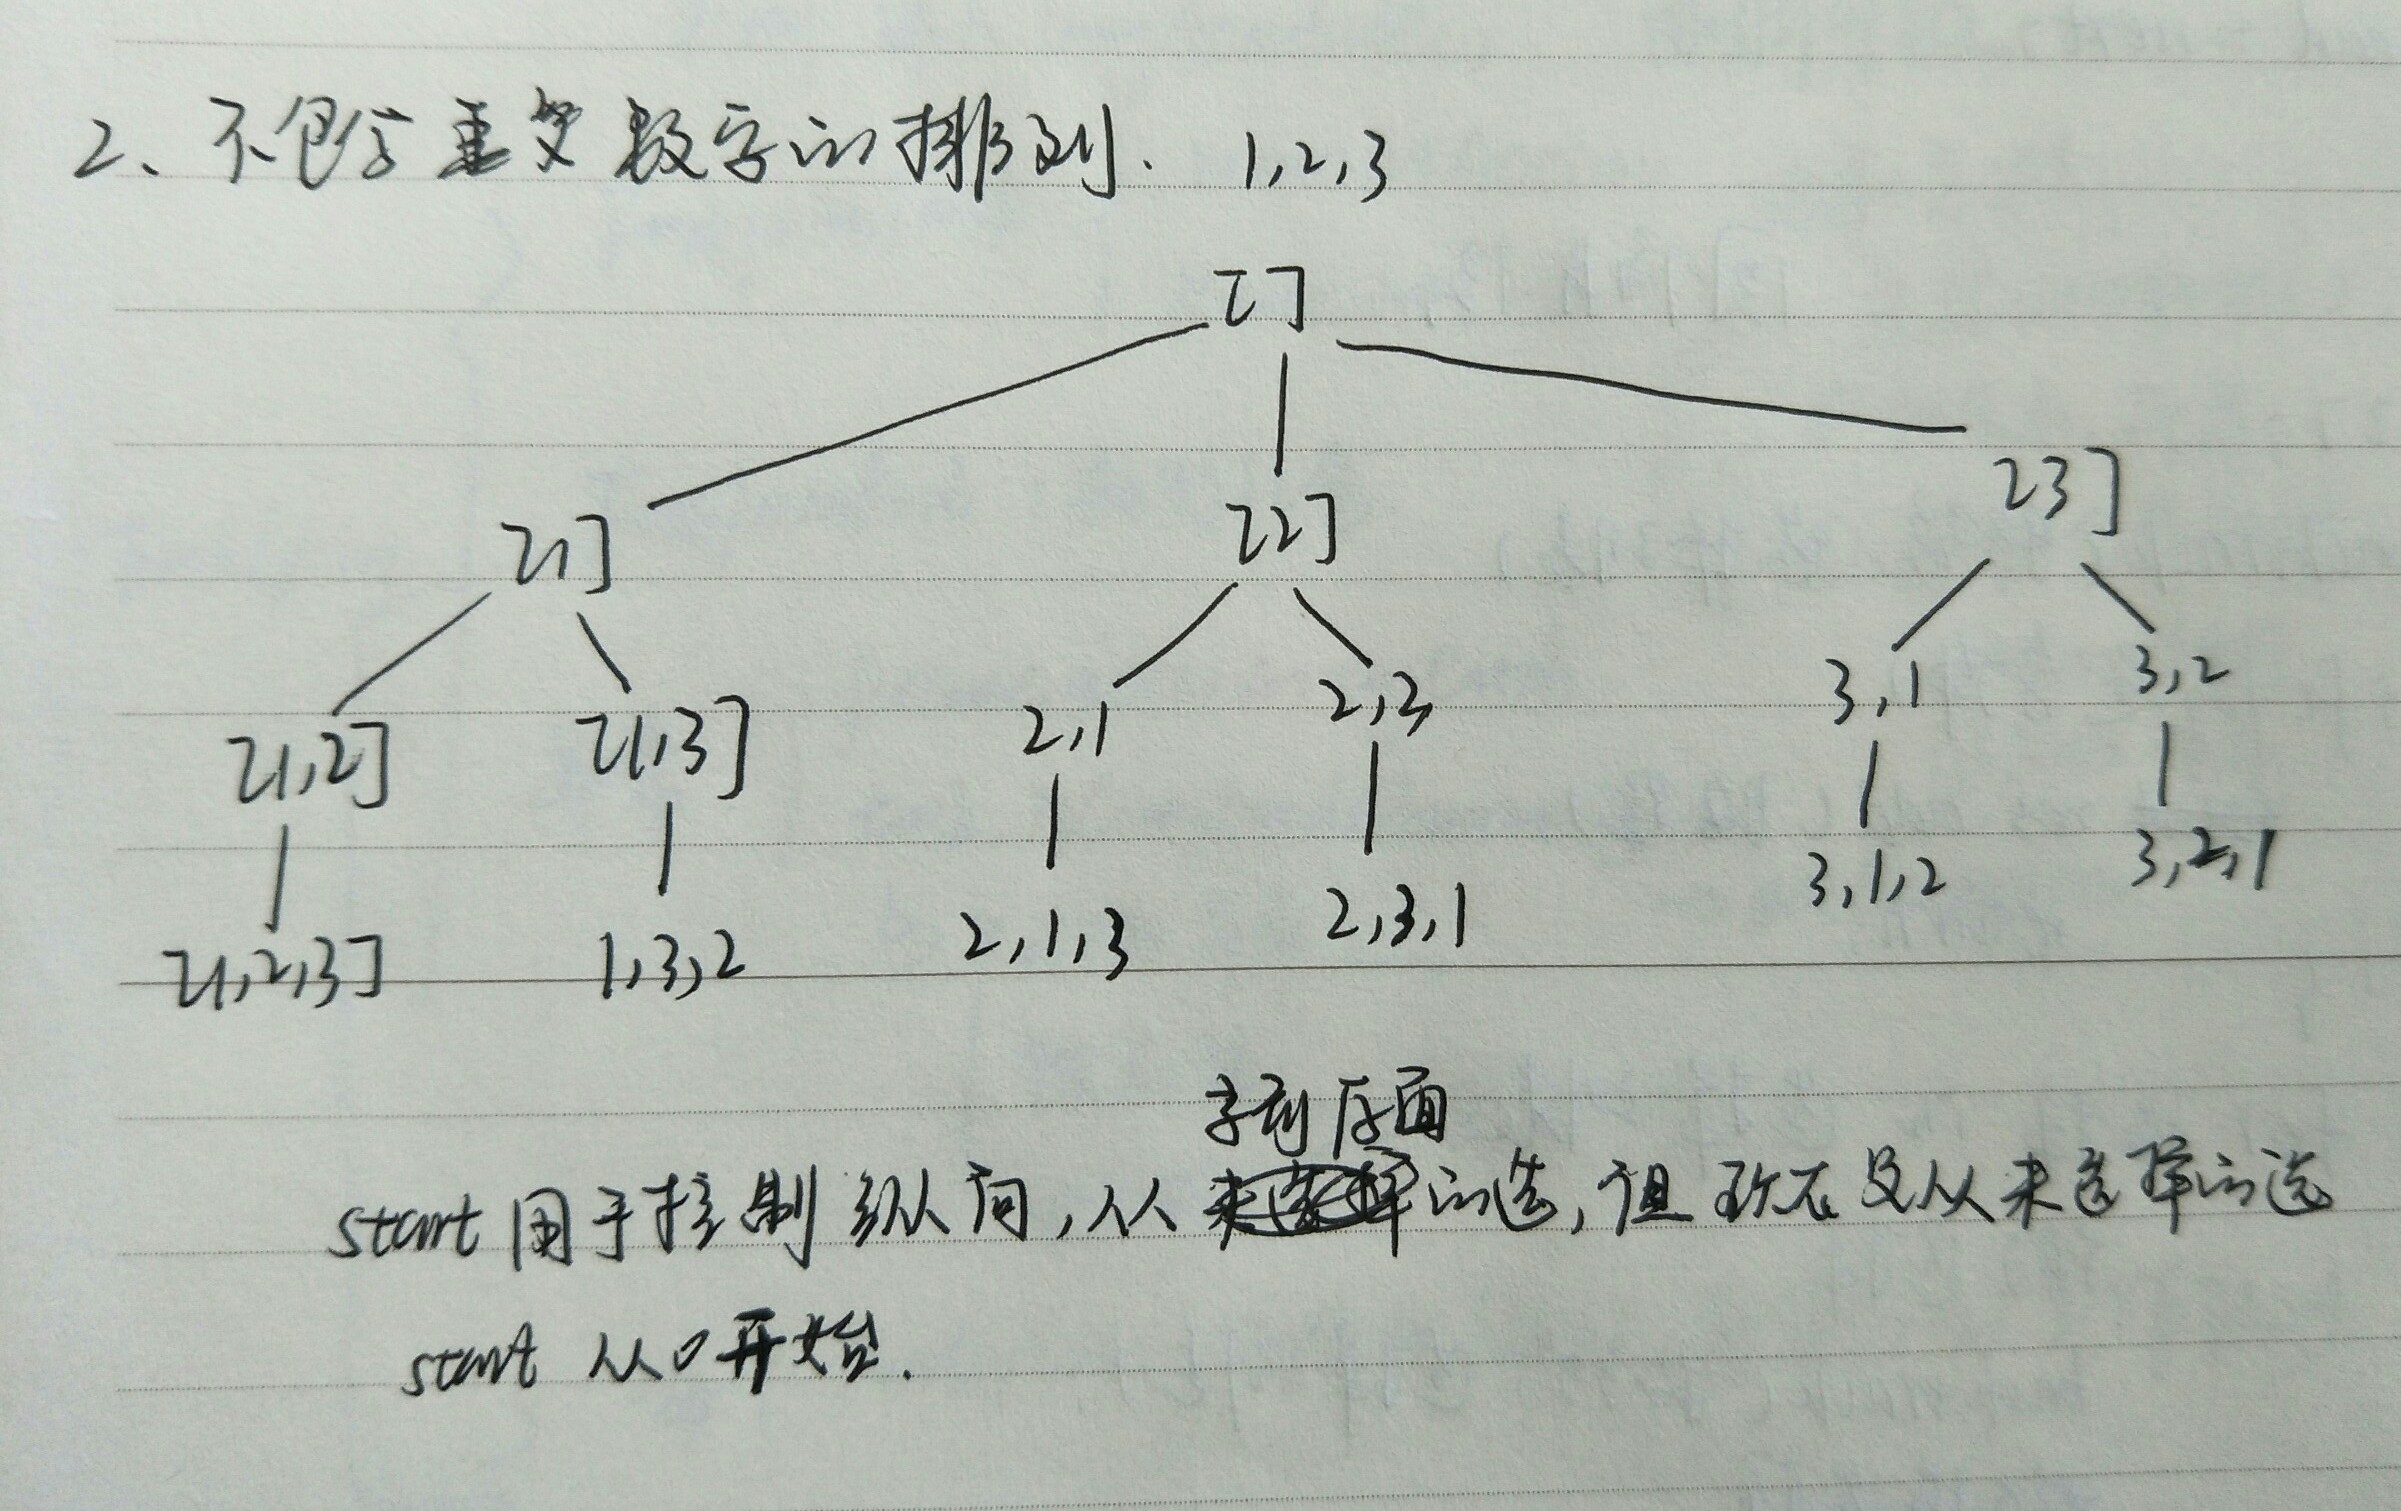 2、不包含重复数字的排列. 1,2,3
[]
[1] [2] [3]
[1,2] [1,3] 2,1 2,3 3,1 3,2
[1,2,3] 1,3,2 2,1,3 2,3,1 3,1,2 3,2,1
后面
start 用于控制纵向,从的选,但现在是从未选择的选
start 从0开始.